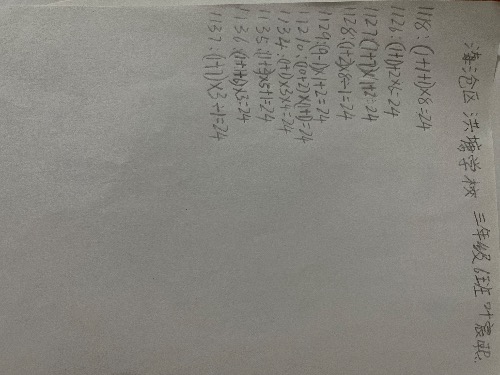 海沧区 洪塘学校 三年级 6班 叶
1118:(1+1+1)×8=24
1126:(1+1+2)×6=24
1127(1+7)×(1+2)=24
1128:(1+2)×8÷1=24
1129:(9-1)×(1+2)=24
11210:(10+2)×(1+1)=24
1134:(1+1)×3×4=24
1135:(1+3)×(5+1)=24
1136:(1+1+6)×3=24
1137:(1+7)×3÷1=24